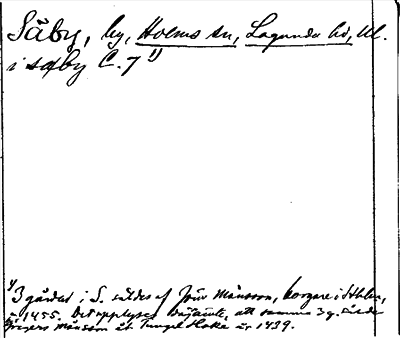 Säby, by, Holms sn, Lagunda hd, Ul.
i säby C. 7 1)
1) 3 gårdar i S. såldes af Jöns Månsson, borgare i Sthlm,
år 1455. Det upplyses därjämte, att samma 3 g. sålde
Månsson åt Hoka år 1439.